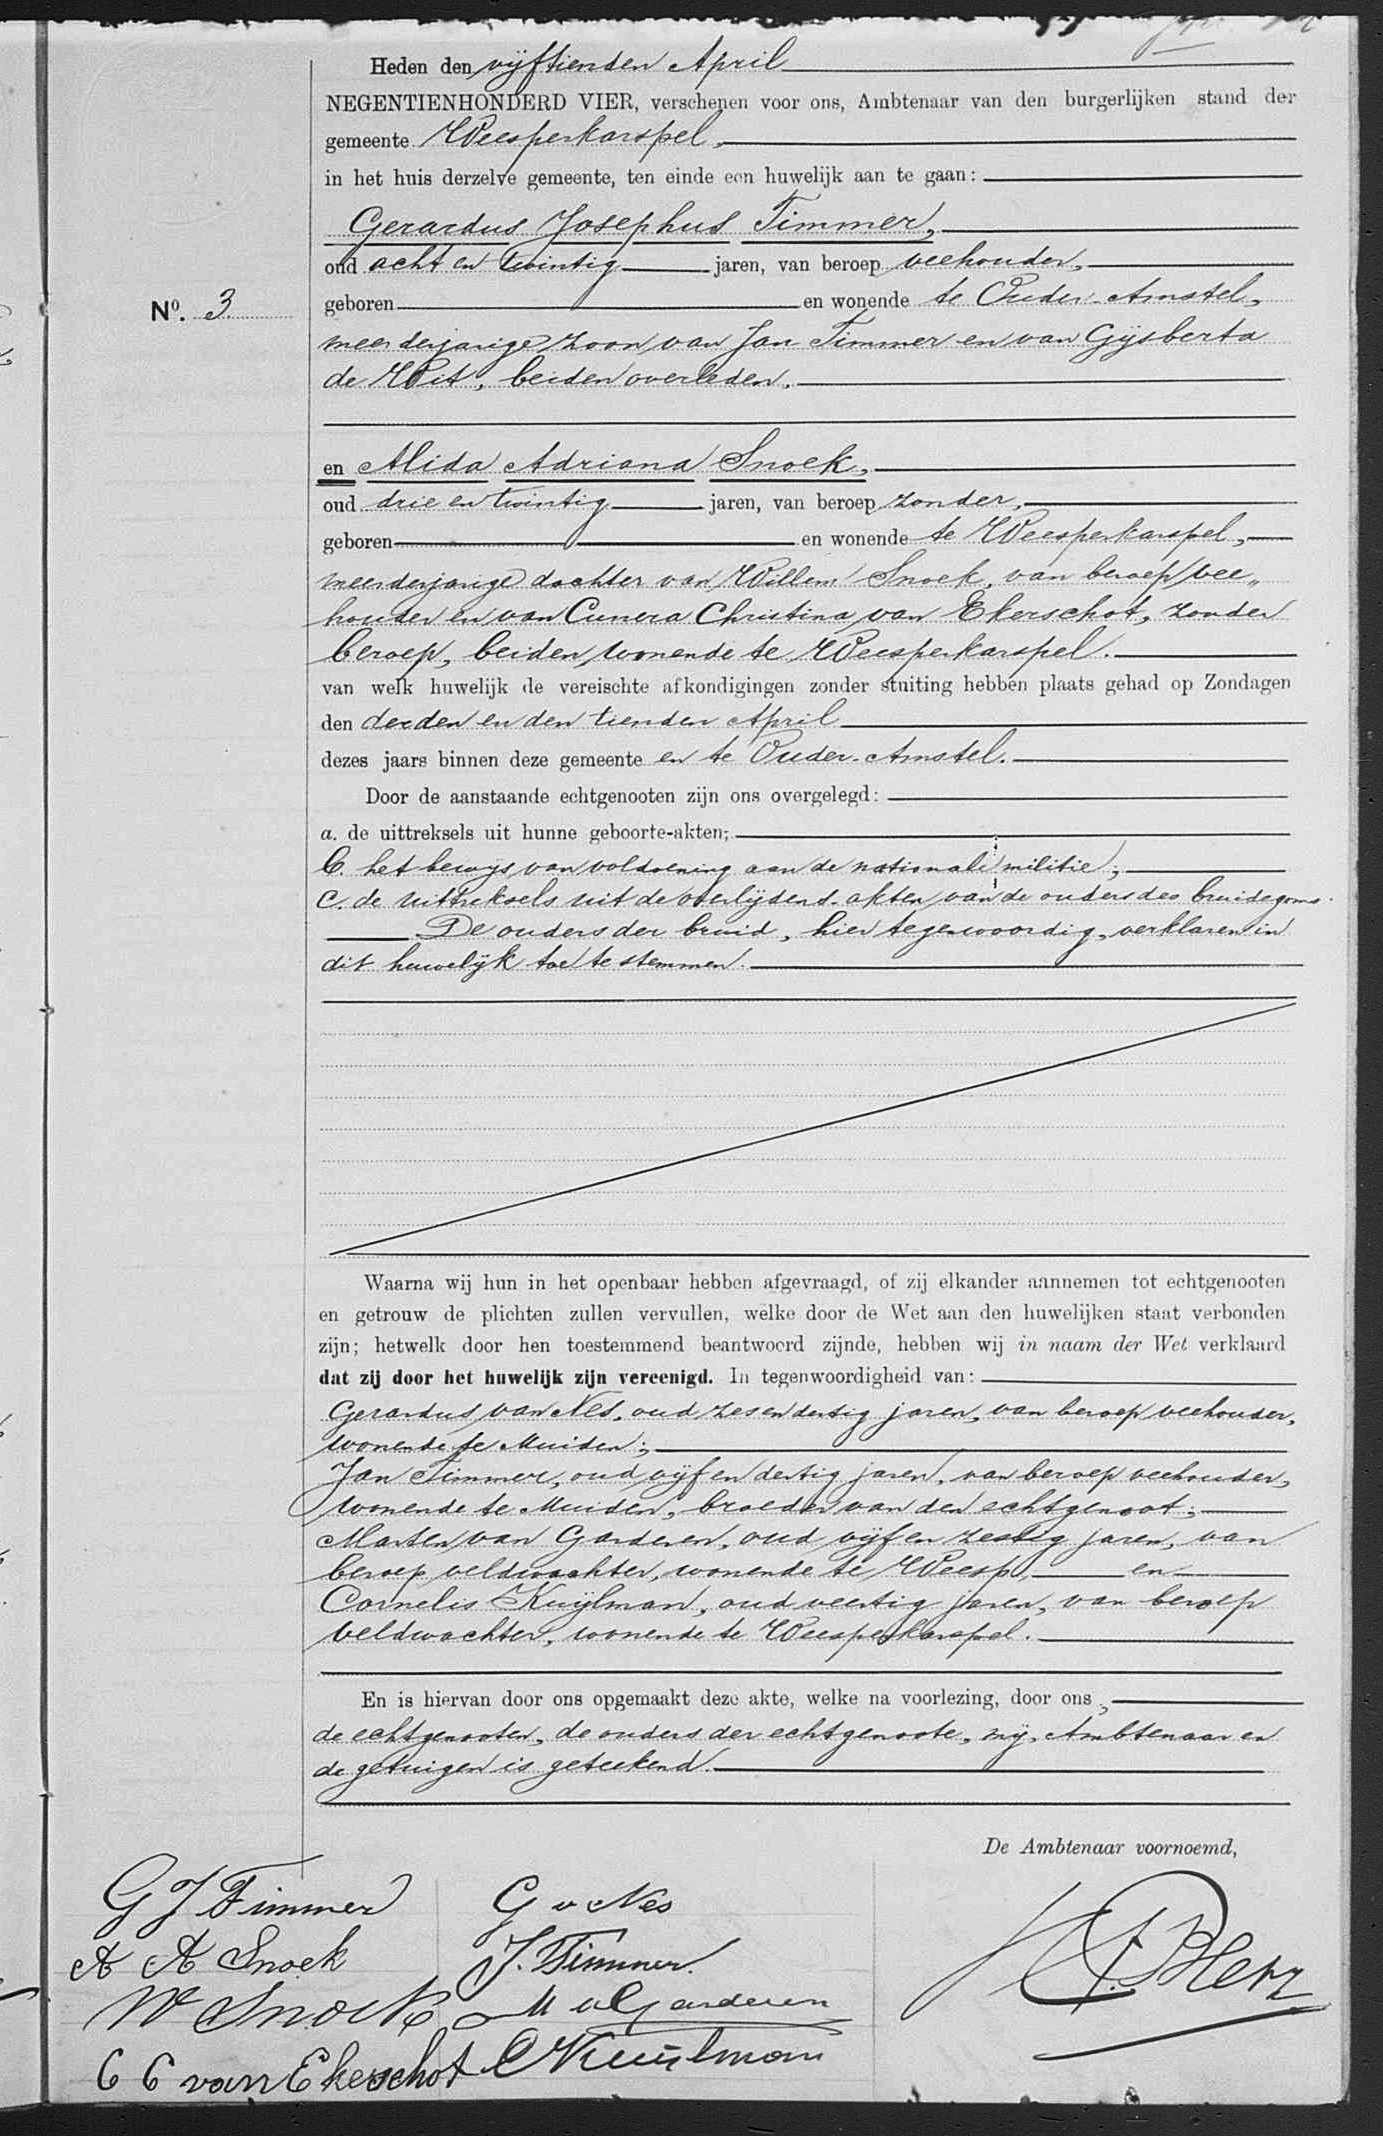 Heden den vijftienden April
NEGENTIENHONDERD VIER, verschenen voor ons, Ambtenaar van den burgerlijken stand der
gemeente Weesperkarspel,
in het huis derzelve gemeente, ten einde een huwelijk aan te gaan:
Gerardus Josephus Timmer,
oud acht en twintig jaren, van beroep veehouder,
No. 3
geboren en wonende te Ouder-Amstel,
meerderjarige zoon van Jan Timmer en van Gijsberta
de Wit, beiden overleden,
en Alida Adriana Snoek,
oud drie en twintig jaren, van beroep zonder,
geboren en wonende te Weesperkarspel,
meerderjarige dochter van Willem Snoek, van beroep vee„
houder en van Cunera Christina van Ekerschot, zonder
beroep, beiden wonende te Weesperkarspel.
van welk huwelijk de vereischte afkondigingen zonder stuiting hebben plaats gehad op Zondagen
den derden en den tienden April
dezes jaars binnen deze gemeente en te Ouder-Amstel.
Door de aanstaande echtgenooten zijn ons overgelegd:
a. de uittreksels uit hunne geboorte-akten;
b. het bewijs van voldoening aan de nationale militie;
c. de uittreksels uit de overlijdens-akten van de ouders des bruidegoms.
De ouders der bruid, hier tegenwoordig, verklaren in
dit huwelijk toe te stemmen.
Waarna wij hun in het openbaar hebben afgevraagd, of zij elkander aannemen tot echtgenooten
en getrouw de plichten zullen vervullen, welke door de Wet aan den huwelijken staat verbonden
zijn; hetwelk door hen toestemmend beantwoord zijnde, hebben wij in naam der Wet verklaard
dat zij door het huwelijk zijn vereenigd. In tegenwoordigheid van:
Gerardus van Nes, oud zesendertig jaren, van beroep veehouder,
wonende te Muiden;
Jan Timmer, oud vijf en dertig jaren, van beroep veehouder,
wonende te Muiden, broeder van den echtgenoot;
Marten van Garderen, oud vijf en zestig jaren, van
beroep veldwachter, wonende te Weesp, en
Cornelis Kuijlman, oud veertig jaren, van beroep
veldwachter, wonende te Weesperkarspel.
En is hiervan door ons opgemaakt deze akte, welke na voorlezing, door ons,
de echtgenooten, de ouders der echtgenoote, mij, Ambtenaar en
de getuigen is geteekend.
De Ambtenaar voornoemd,
G J Timmer
A A Snoek
W Snoek
C C van Ekerschot
G v Nes
J. Timmer.
M v Garderen
C Kuijlman